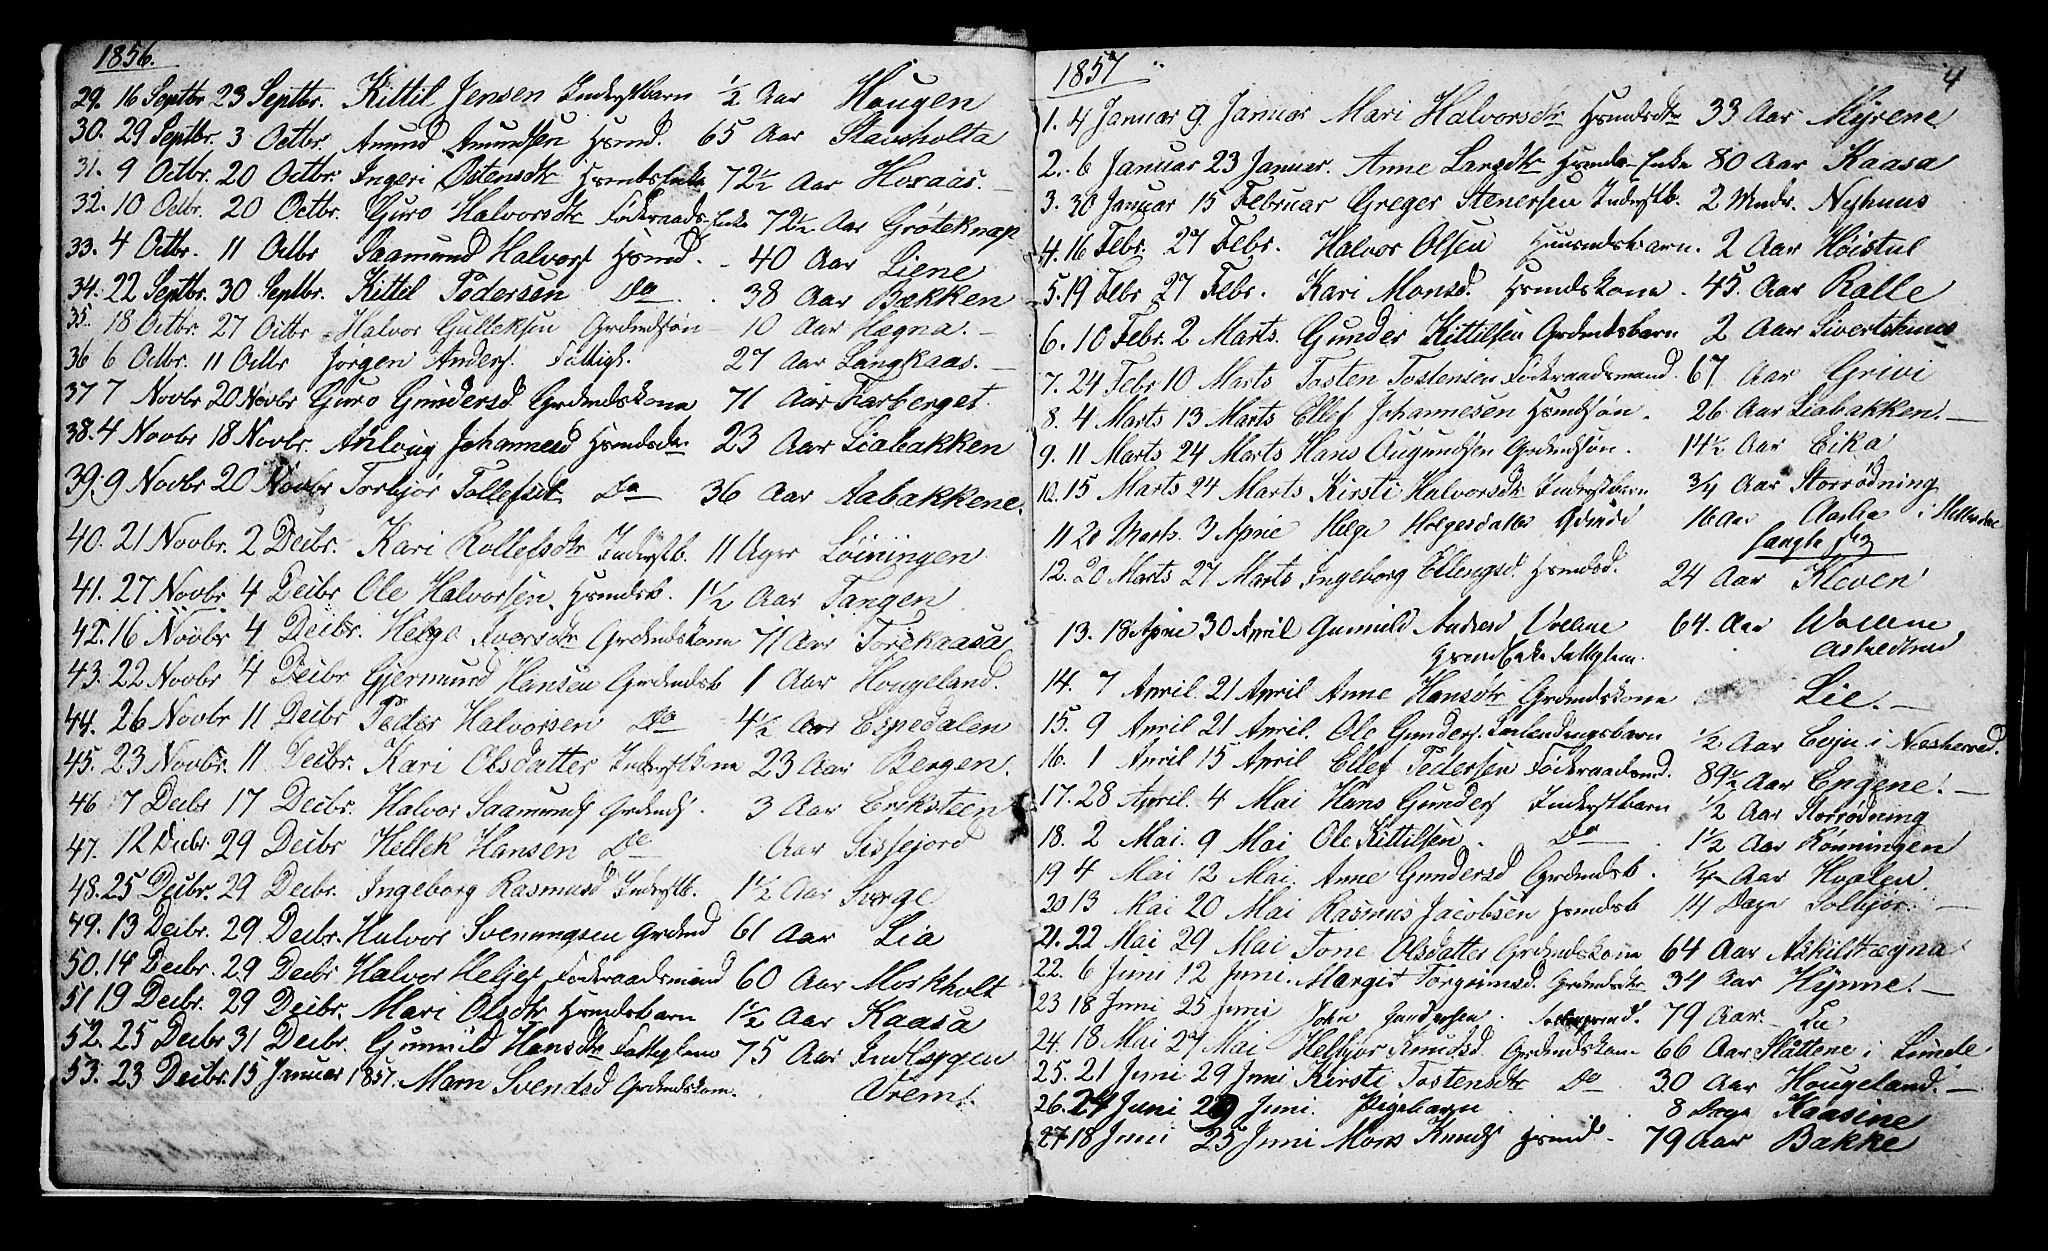 1856.
29. 16 Septbr 23 Septbr. Kittil Jensen Inderstbarn ½ Aar Hougen
30. 29 Septbr. 3 Octbr. Amund Amundsen Hsmd. 65 Aar Stavsholta
31. 9 Octbr. 20 Octbr. Ingeri Østensdtr Hsmdsenke 72½ Aar Horaas.
32. 10 Octbr. 20 Octbr. Guro Halvorsdtr Føderaads Enke 72½ Aar Grøteknap
33. 4 Octbr. 11 Octbr Saamund Halvors Hsmd. 40 Aar Liene
34. 22 Septbr. 30 Septbr. Kittil Pedersen Do 38 Aar Bækken
35. 18 Octbr. 27 Octbr Halvor Gulleksen Grdmdsøn 10 Aar Hægna.
36 6 Octbr. 11 Octbr Jorgen Anders. Fattigl. 27 Aar Langkaas.
37 7 Novbr 20 Novbr Guro Gundersd Grdmdskone 71 Aar Farberget
38. 4 Novbr 18 Novbr. Anloug Johannesd Hsmdsdtr 23 Aar Liabakken
39. 9 Novbr 20 Novbr Torbjør Tollefsdt Do 36 Aar Aabakkene.
40. 21 Novbr. 2 Decbr. Kari Rollefsdtr Inderstb. 11 Uger Løiningen
41. 27 Novbr. 4 Decbr Ole Halvorsen Hsmdsb. 1½ Aar Tangen
42. 16 Novbr 4 Decbr. Helge Iversdtr Grdmdskone 71 Aar Torekaasa
43. 22 Novbr 4 Decbr Gjermund Hansen Grdmdsb 1 Aar Hougeland.
44. 26 Novbr 11 Decbr Peder Halvorsen Do 4½ Aar Espedalen
45. 23 Novbr. 11 Decbr. Kari Olsdatter Inderstkone 23 Aar Bergen.
46 7 Decbr 17 Decbr. Halvor Saamunds Grdmds. 3 Aar Eriksteen
47. 12 Decbr. 29 Decbr Hellek Hansen Do Aar Sisjord
48. 25 Decbr. 29 Decbr. Ingeborg Rasmusd Inderstb. 1½ Aar Sverge
49. 13 Decbr. 29 Decbr. Halvor Svenungsen Grdmd 61 Aar Lia
50. 14 Decbr. 29 Decbr Halvor Heljes Føderaadsmand 60 Aar Morkholt
51 19 Decbr. 29 Decbr. Mari Olsdtr Hsmdsbarn 1½ Aar Kaasa
52. 25 Decbr 31 Decbr. Gunnild Hansdtr Fattiglem 75 Aar Indlæggen
53. 23 Decbr. 15 Januar 1857. Maren Svendsd Grdmdskone. Vrem.
1857
4
1. 4 Januar 9. Januar Mari Halvorsdtr Hsmdsdtr 33 Aar Myrene
2. 6 Januar 23 Januar. Anne Larsdtr Hsmds Enke 80 Aar Kaasa
3. 30 Januar 15 Februar Greger Stenersen Inderstb. 2 Mndr. Nyhuus
4. 16 Febr. 27 Febr. Halvor Olsen Huusmdsbarn. 2 Aar Høistul
5. 19 Febr 27 Febr. Kari Monsd. Hsmdskone. 45. Aar Kalle
6. 10 Febr. 2 Marts. Gunder Kittilsen Grdmdsbarn 2 Aar Sivertshuus
7. 24 Febr 10 Marts Tosten Tostensen Føderaadsmand. 67 Aar Grivi
8. 4 Marts 13 Marts Ellef Johannesen Hsmdsøn. 26 Aar Liabakken.
9. 11 Marts 24 Marts Hans Augundsen Grdmdsøn. 14½ Aar Eika
10. 15 Marts 24 Marts Kirsti Halvorsdtr Inderstbarn ¾ Aar Storrødning
11 20 Marts. 3 April Helge Holgesdatter 16 Aar Aasen i
12. 20 Marts 27 Marts Ingeborg Ellingsd. Hsmdsd. 24 Aar Kleven
13. 18 April 30 April Gunnild Andersd Volene 64. Aar Volene
Hsmd Enke Fattiglem.
14. 7 April. 21 April Anne Hansdtr Grdmdskone Lie.
15. 9 April 21 April. Ole Gunders. Innlendingsbarn ½ Aar Evju i Nesherred.
16. 1 April 15 April Ellef Pedersen Føderaadsmd. 89½ Aar Engene.
17. 28 April. 4 Mai Hans Gunders Inderstbarn ½ Aar Storrødning
18. 2 Mai. 9 Mai Ole Kittilsen. Do 1½ Aar Rønningen
19 4 Mai 12 Mai. Anne Gundersd Grdmdsb. Aar Hvalen.
20 13 Mai 20 Mai Rasmus Jacobsen Hsmdsb 14 Dage Solbjør.
21. 22 Mai 29 Mai Tone Olsdatter Grdmdskone 64 Aar Askilthægna
22. 6 Juni 12 Juni. Margit Torgrimsd. Grdmdsdtr 34 Aar Hynne.
23 18 Juni 25 Juni John Gundersen. 79 Aar.
24. 18 Mai 27 Mai Helbjør Knudsd. Grdmdskone 66 Aar Slåttene i Lunde
25. 21 Juni 29 Juni Kirsti Tostensdtr Do 30 Aar Hougeland.
26. 24 Juni Juni. Pigebarn 8 Dage Kaasine
27 18 Juni 25 Juni Mons Knuds Hsmd. 79 Aar Bakke